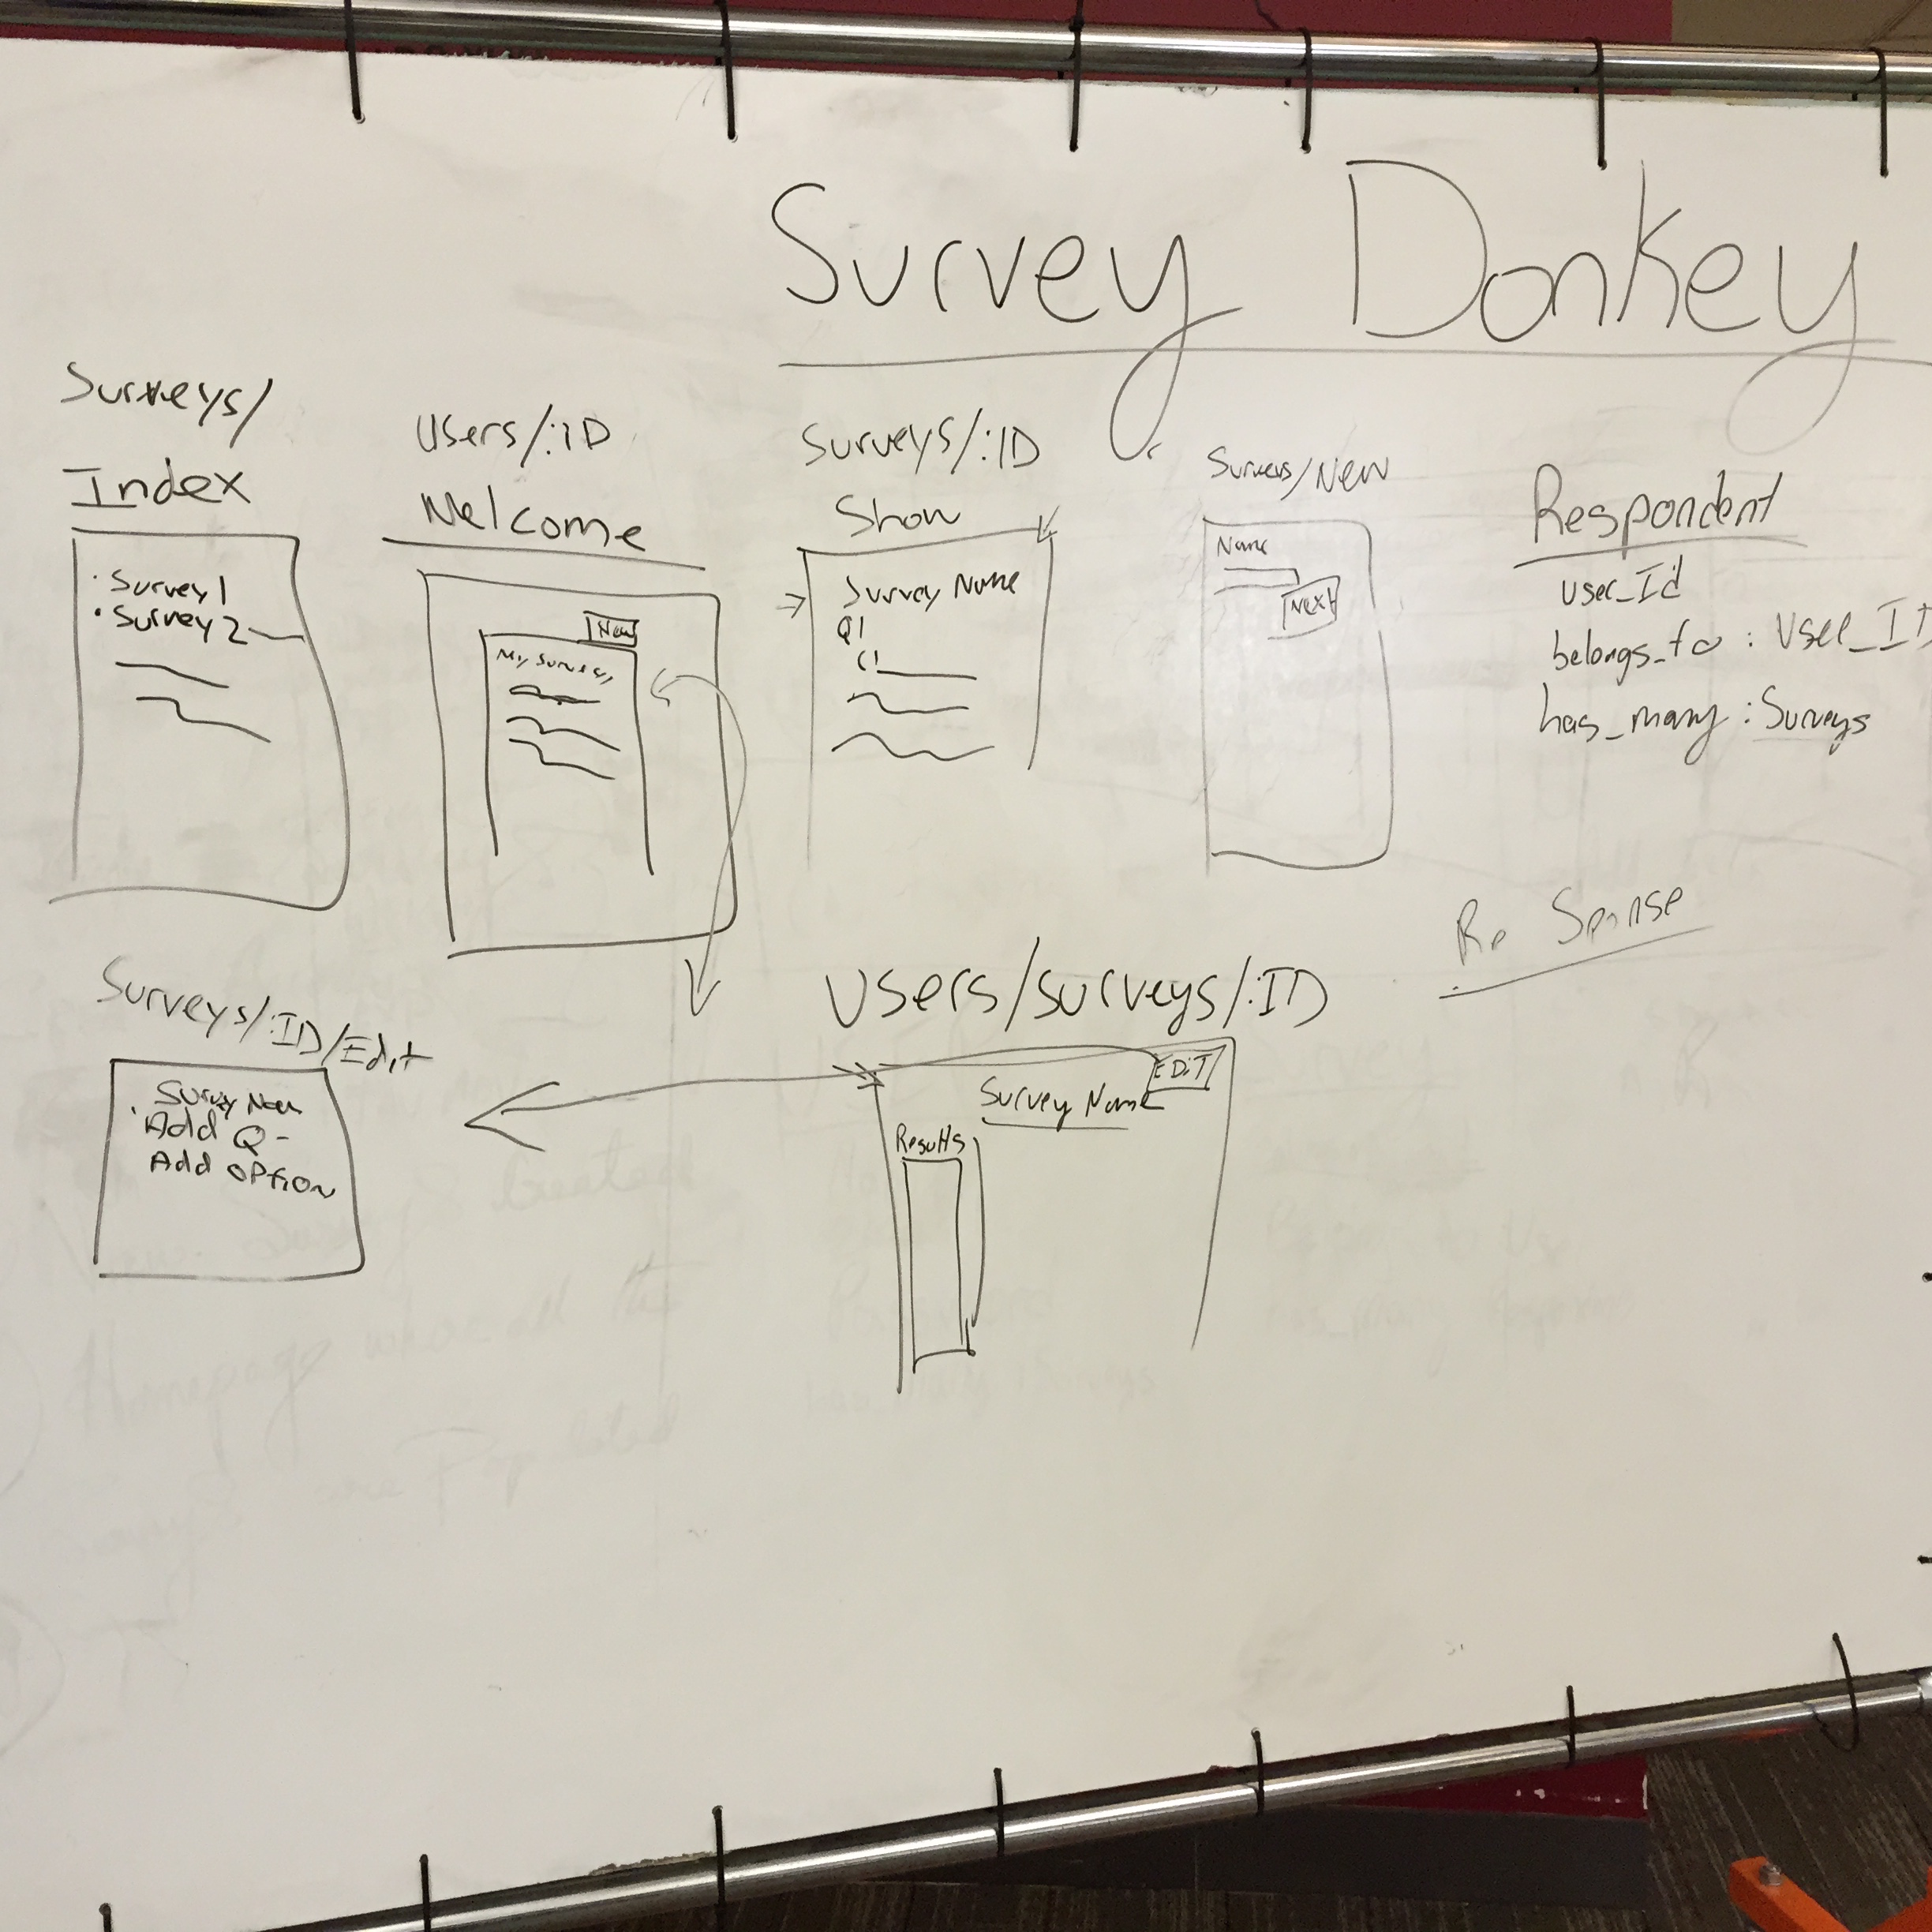 Survey Donkey
Surveys/
Index
Survey 1
Survey 2
Users/:ID
Welcome
New
My Surveys
Surveys/:ID
Show
Survey Name
Q1
C1
Surveys/New
Name
Next
Respondent
user_Id
belongs_to : User_ID
has_many : Surveys
Response
Surveys/:ID/Edit
Survey Name
Add Q-
Add option
Users/surveys/:ID
EDiT
Survey Name
Results